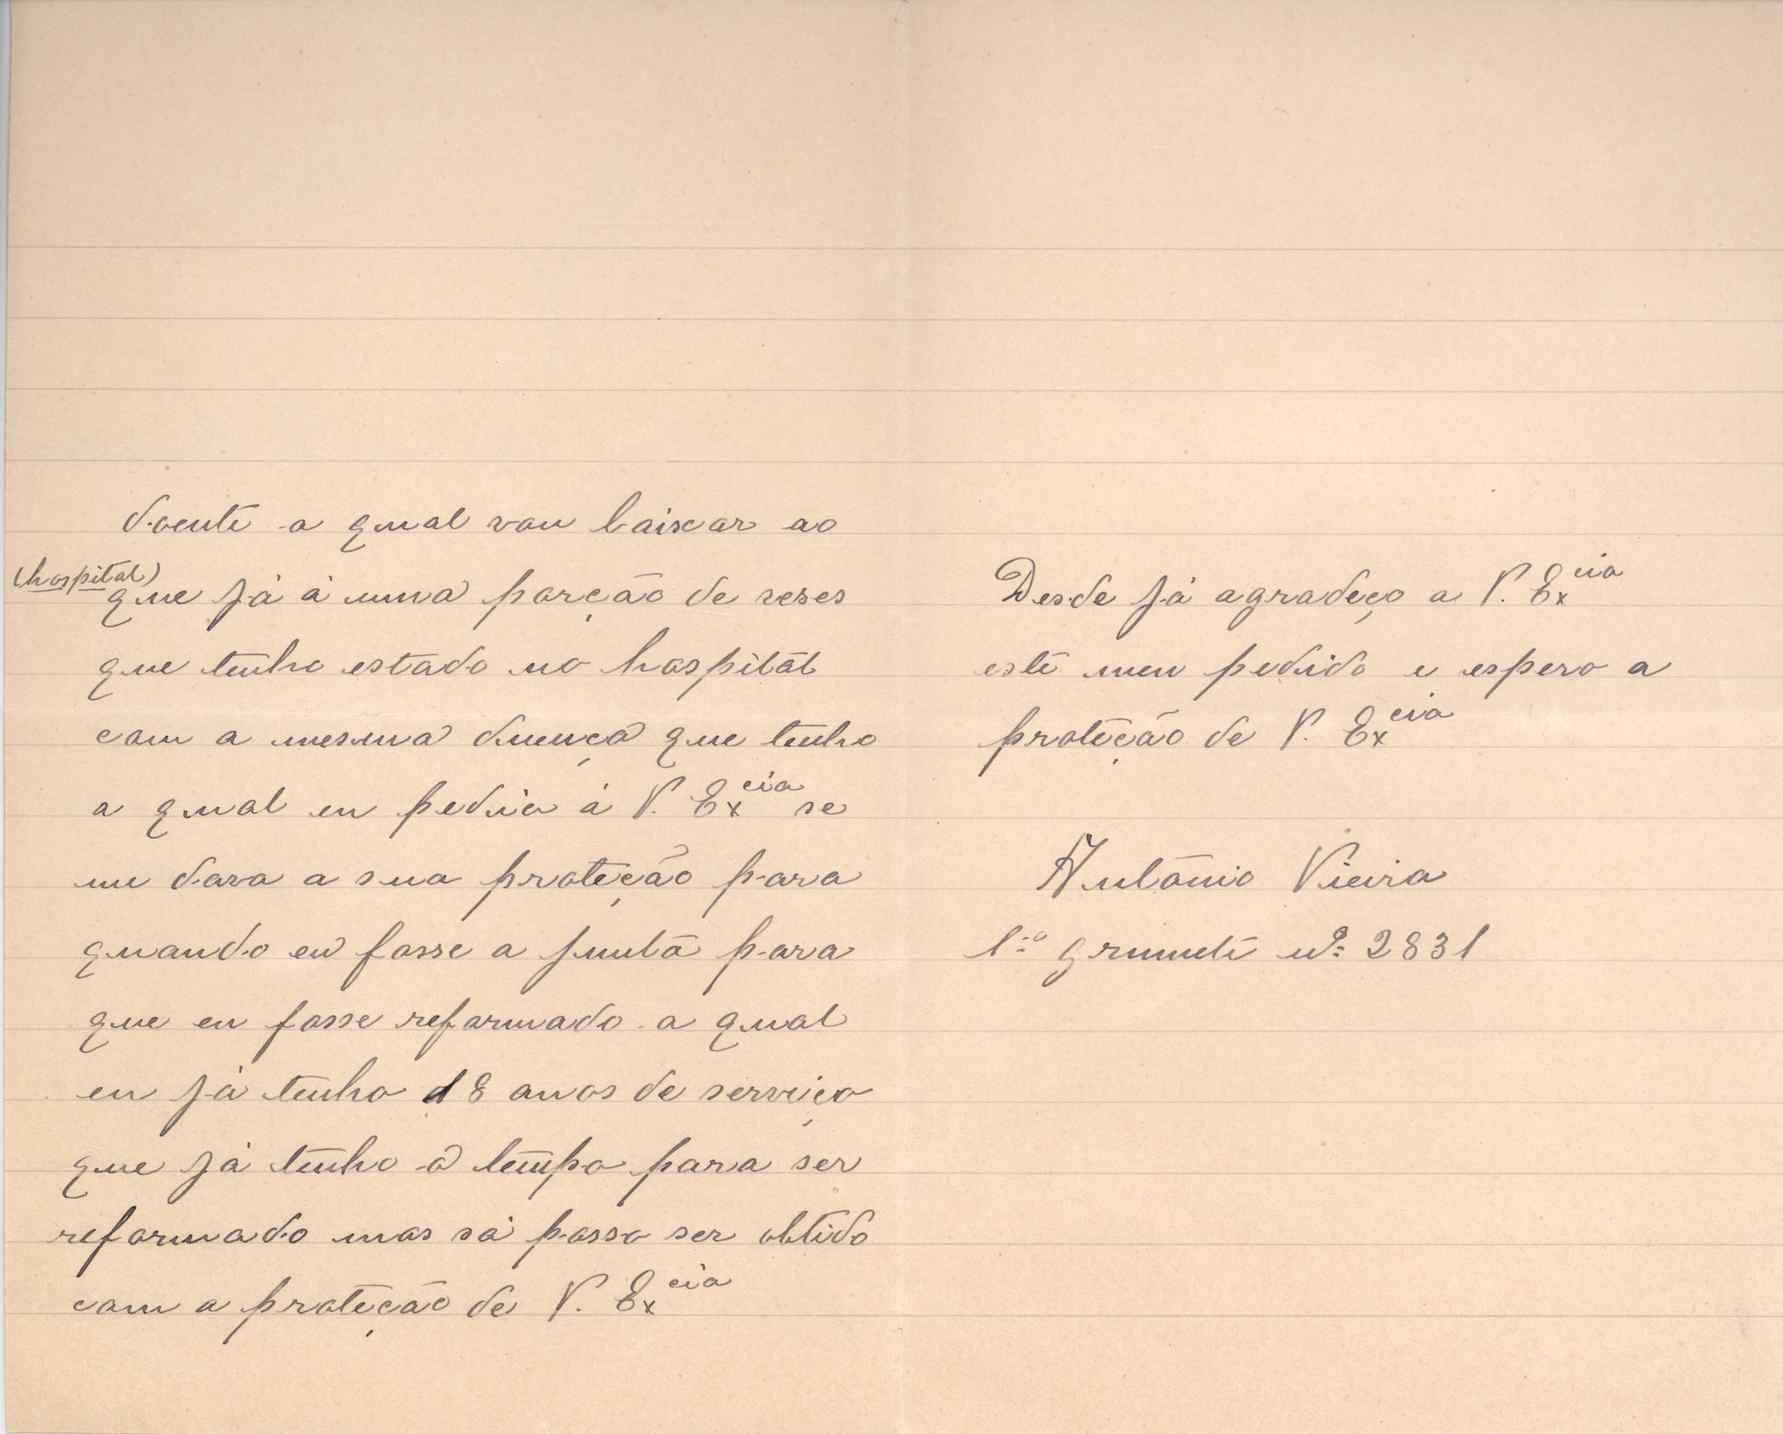 doente a qual vou baixar ao
(hospital)
que já á uma porção de veses
que tenho estado no hospital
com a mesma duença que tenho
a qual eu pedia á V. Ex.cia se
me dava a sua proteção para
quando eu fosse a junta para
que eu fosse reformado a qual
eu já tenho 18 anos de serviço
que já tenho o tempo para ser
reformado mas só posso ser obtido
com a proteção de V. Ex.cia
Desde já agradeço a V. Ex.cia
este meu pedido e espero a
proteção de V. Ex.cia
António Vieira
1.º grumete nº 2831